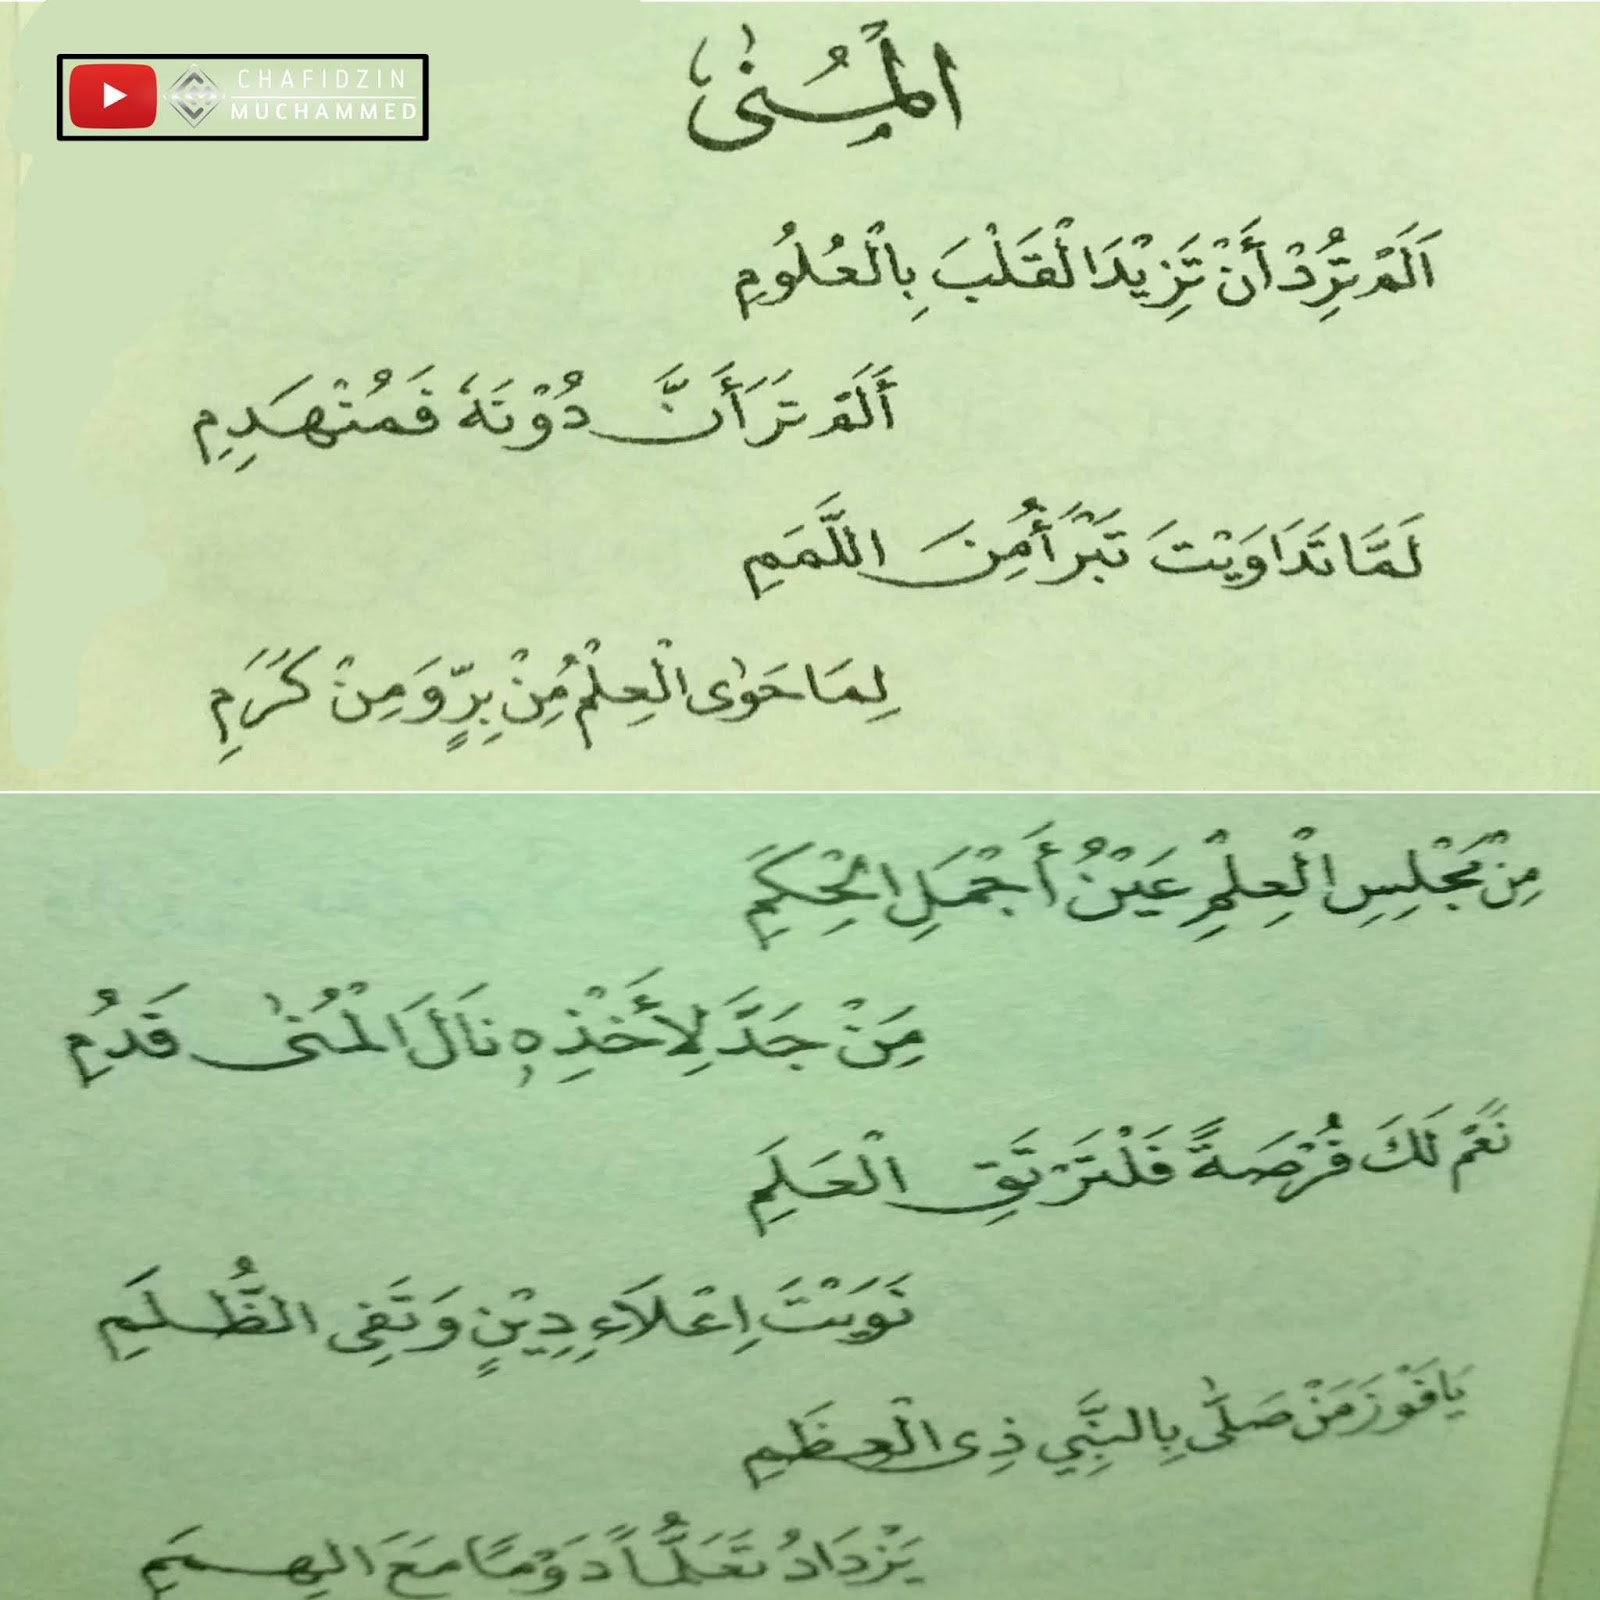 CHAFIDZIN
MUCHAMMED
الْمُنىٰ
اَلَمْ تُرِدْ أَنْ تَزِيْدَ الْقَلْبَ بِالْعُلُومِ
أَلَمْ تَرَ أَنَّ دُوْنَهٗ فَمُنْهَدِمِ
لَمَّا تَدَاوَيْتَ تَبْرَأُ مِنَ اللَّمَمِ
لِمَا حَوٰى الْعِلْمُ مِنْ بِرٍّ وَمِنْ كَرَمِ
مِنْ مَجْلِسِ الْعِلْمِ عَيْنُ أَجْمَلِ الْحِكَمِ
مَنْ جَدَّ لِأَخْذِهٖ نَالَ الْمُنىٰ قَدُمِ
نَعَمْ لَكَ فُرْصَةً فَلْتَرْتَقِ الْعَلَمِ
نَوَيْتَ اِعْلَاءِ دِيْنٍ وَنَفِى الظُّلَمِ
يَا فَوْزَ مَنْ صَلّٰى بِالنَّبِّيِ ذِى الْعِظَمِ
يَزْدَادُ تَعَلُّمًا دَوْمًا مَعَ الْهِمَمِ